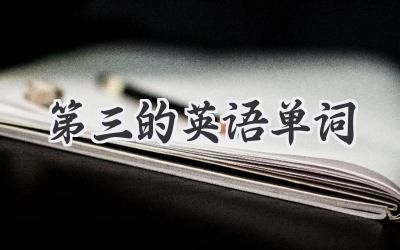 第三的英语单词